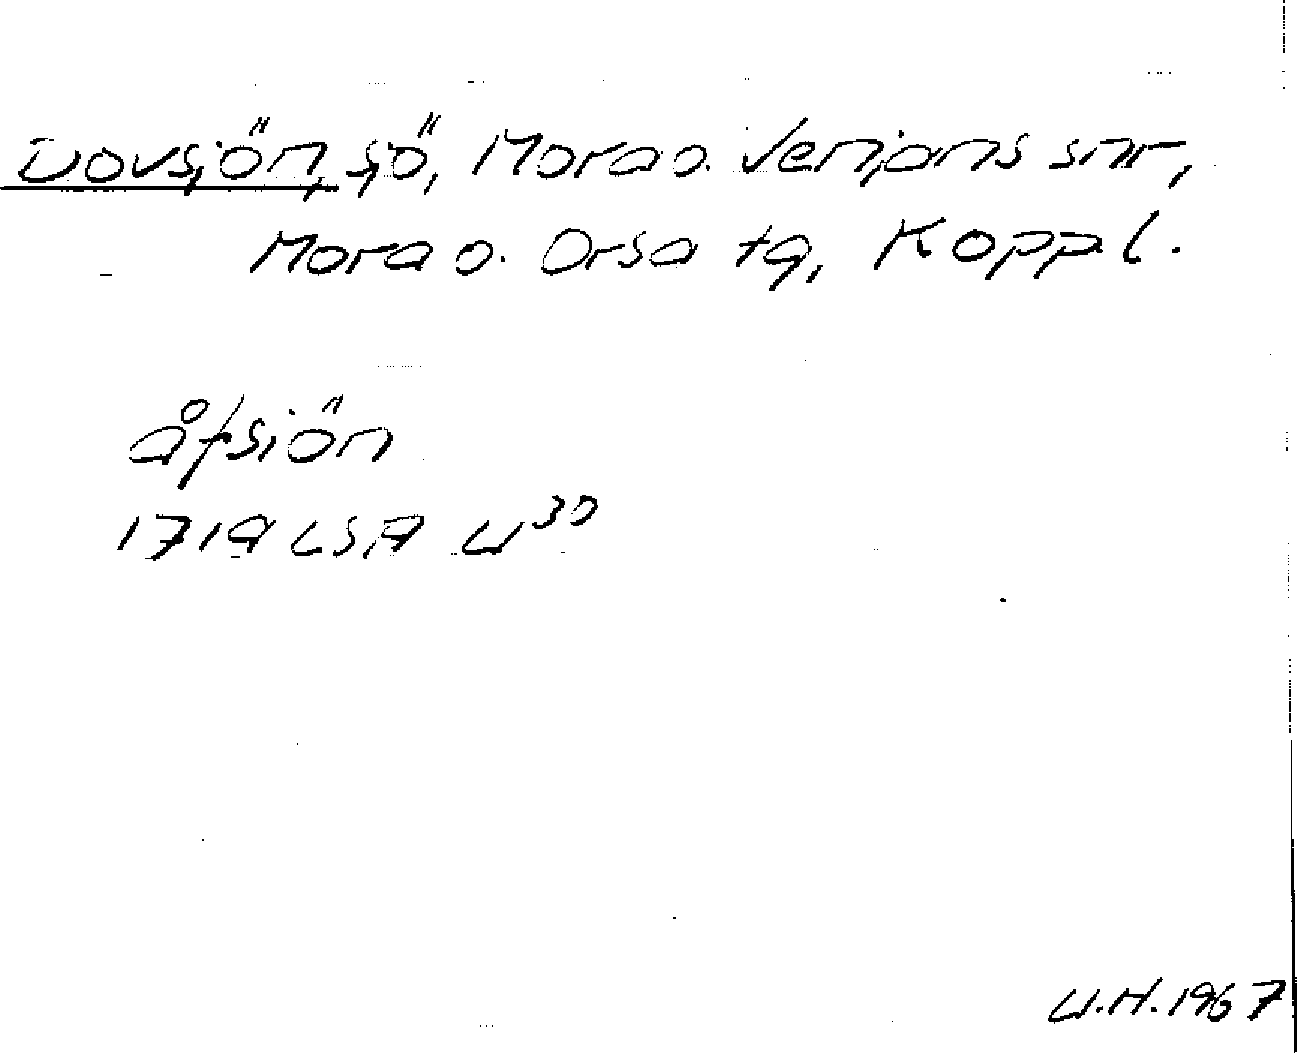 Dovsjön, sjö, Mora o. Venjans snr,
Mora o. Orsa tg, Kopp.l.
åfsiön
1719 LSA U³⁰
U.H. 1967